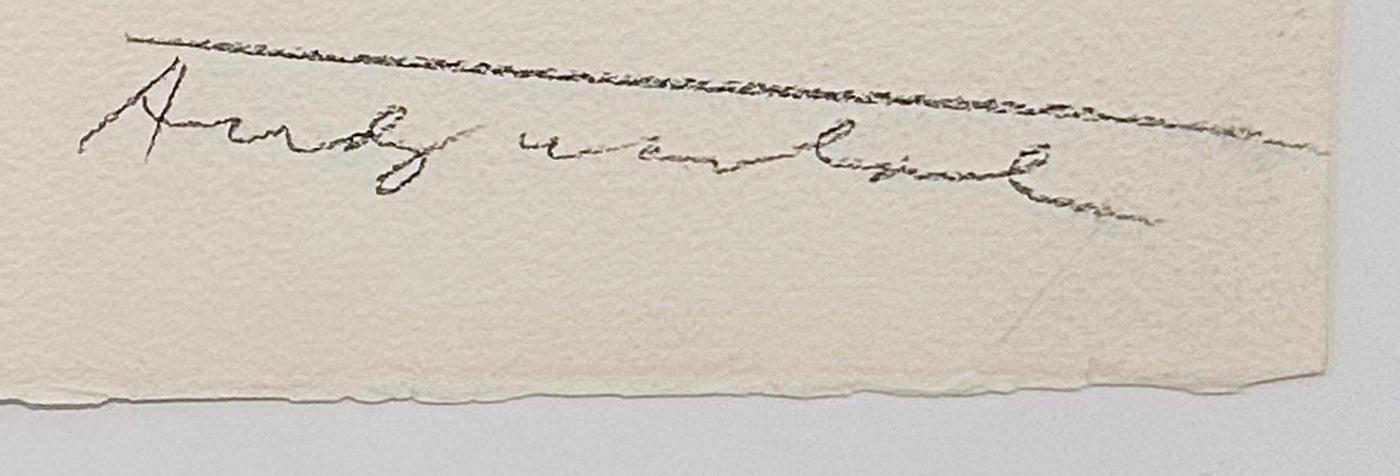 Andy warhol